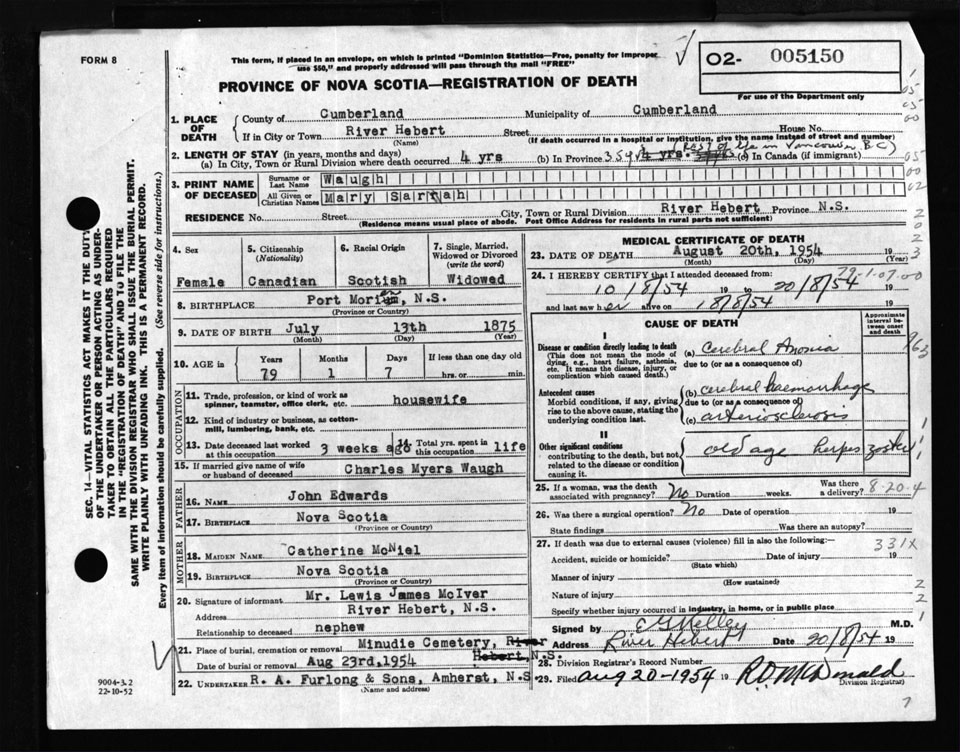 FORM 8
This form, if placed in an envelope, on which is printed "Dominion Statistics—Free, penalty for improper
use $50," and properly addressed will pass through the mail "FREE"
O2- 005150
For use of the Department only
PROVINCE OF NOVA SCOTIA—REGISTRATION OF DEATH
1. PLACE OF DEATH
County of Cumberland Municipality of Cumberland
If in City or Town River Hebert Street House No.
(Name) (If death occurred in a hospital or institution, give the name instead of street and number)
(Rest of life in Vancouver B.C)
2. LENGTH OF STAY (in years, months and days)
(a) In City, Town or Rural Division where death occurred 4 yrs (b) In Province 35 yrs (c) In Canada (if immigrant)
3. PRINT NAME OF DECEASED
Surname or Last Name Waugh
All Given or Christian Names Mary Sarah
RESIDENCE No. Street City, Town or Rural Division River Hebert Province N.S.
(Residence means usual place of abode. Post Office Address for residents in rural parts not sufficient)
4. Sex
Female
5. Citizenship
(Nationality)
Canadian
6. Racial Origin
Scotish
7. Single, Married, Widowed or Divorced
(write the word)
Widowed
8. BIRTHPLACE Port Morien, N.S.
(Province or Country)
9. DATE OF BIRTH July 13th 1875
(Month) (Day) (Year)
10. AGE in Years Months Days If less than one day old
79 1 7 hrs. or min.
OCCUPATION
11. Trade, profession, or kind of work as spinner, teamster, office clerk, etc. housewife
12. Kind of industry or business, as cotton-mill, lumbering, bank, etc.
13. Date deceased last worked at this occupation 3 weeks ago 14. Total yrs. spent in this occupation life
15. If married give name of wife or husband of deceased Charles Myers Waugh
FATHER
16. NAME John Edwards
17. BIRTHPLACE Nova Scotia
(Province or Country)
MOTHER
18. MAIDEN NAME Catherine McNiel
19. BIRTHPLACE Nova Scotia
(Province or Country)
20. Signature of informant Mr. Lewis James McIver
Address River Hebert, N.S.
Relationship to deceased nephew
21. Place of burial, cremation or removal Minudie Cemetery, River Hebert, N.S.
Date of burial or removal Aug 23rd, 1954
22. UNDERTAKER R. A. Furlong & Sons, Amherst, N.S
(Name and address)
MEDICAL CERTIFICATE OF DEATH
23. DATE OF DEATH August 20th, 1954 19
(Month) (Day) (Year)
24. I HEREBY CERTIFY that I attended deceased from:
10/8/54 19 to 20/8/54 19
and last saw her alive on 18/8/54 19
CAUSE OF DEATH
Approximate interval between onset and death
I
Disease or condition directly leading to death
(This does not mean the mode of dying, e.g., heart failure, asthenia, etc. It means the disease, injury, or complication which caused death.)
(a) Cerebral Anoxia
due to (or as a consequence of)
Antecedent causes
Morbid conditions, if any, giving rise to the above cause, stating the underlying condition last.
(b) cerebral haemorrhage
due to (or as a consequence of)
(c) arteriosclerosis
II
Other significant conditions
contributing to the death, but not related to the disease or condition causing it.
old age herpes zoster
25. If a woman, was the death associated with pregnancy? No Duration weeks. Was there a delivery?
8-20-4
26. Was there a surgical operation? No Date of operation 19
State findings Was there an autopsy?
27. If death was due to external causes (violence) fill in also the following:—
331X
Accident, suicide or homicide? Date of injury 19
(State which)
Manner of injury
(How sustained)
Nature of injury
Specify whether injury occurred in industry, in home, or in public place
Signed by E G Kelley M.D.
Address River Hebert Date 20/8/54 19
28. Division Registrar's Record Number
29. Filed Aug 20-1954 19 R D McDonald
Division Registrar)
SEC. 14—VITAL STATISTICS ACT MAKES IT THE DUTY
OF THE UNDERTAKER OR PERSON ACTING AS UNDER-
TAKER TO OBTAIN ALL THE PARTICULARS REQUIRED
IN THE "REGISTRATION OF DEATH" AND TO FILE THE
SAME WITH THE DIVISION REGISTRAR WHO SHALL ISSUE THE BURIAL PERMIT.
WRITE PLAINLY WITH UNFADING INK. THIS IS A PERMANENT RECORD.
Every item of information should be carefully supplied. (See reverse side for instructions.)
9004-3.2
22-10-52